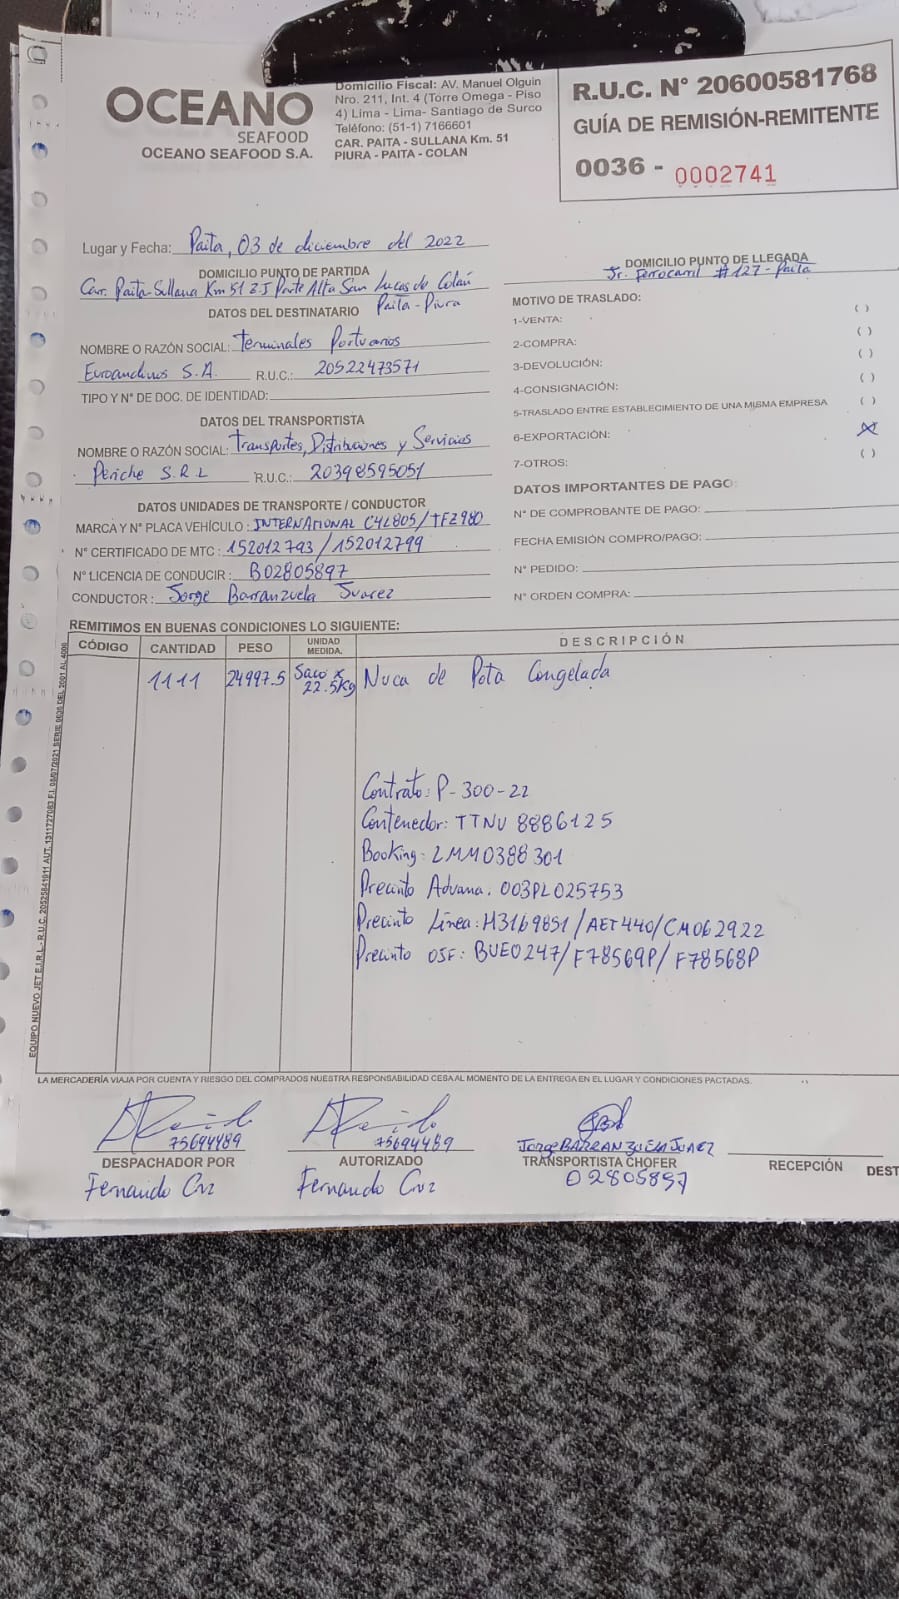 OCEANO
SEAFOOD
OCEANO SEAFOOD S.A.
Domicilio Fiscal: AV. Manuel Olguin
Nro. 211, Int. 4 (Torre Omega - Piso
4) Lima - Lima- Santiago de Surco
Teléfono: (51-1) 7166601
CAR. PAITA - SULLANA Km. 51
PIURA - PAITA - COLAN
R.U.C. N° 20600581768
GUÍA DE REMISIÓN-REMITENTE
0036 - 0002741
Lugar y Fecha: Paita, 03 de diciembre del 2022
DOMICILIO PUNTO DE PARTIDA
Car. Paita-Sullana Km 51 Z.I Parte Alta San Lucas de Colán
Paita-Piura
DOMICILIO PUNTO DE LLEGADA
Jr. Ferrocarril #127-Paita
DATOS DEL DESTINATARIO
NOMBRE O RAZÓN SOCIAL: Terminales Portuarios
Euroandinos S.A. R.U.C.: 20522473571
TIPO Y N° DE DOC. DE IDENTIDAD:
DATOS DEL TRANSPORTISTA
NOMBRE O RAZÓN SOCIAL: Transportes, Distribuciones y Servicios
Periche S.R.L R.U.C.: 20398595051
DATOS UNIDADES DE TRANSPORTE / CONDUCTOR
MARCA Y N° PLACA VEHÍCULO: INTERNATIONAL C4L805/TFZ980
N° CERTIFICADO DE MTC: 152012793/152012799
N° LICENCIA DE CONDUCIR: B02805897
CONDUCTOR: Jorge Barranzuela Juarez
MOTIVO DE TRASLADO:
1-VENTA: ( )
2-COMPRA: ( )
3-DEVOLUCIÓN: ( )
4-CONSIGNACIÓN: ( )
5-TRASLADO ENTRE ESTABLECIMIENTO DE UNA MISMA EMPRESA ( )
6-EXPORTACIÓN: (X)
7-OTROS: ( )
DATOS IMPORTANTES DE PAGO:
N° DE COMPROBANTE DE PAGO:
FECHA EMISIÓN COMPRO/PAGO:
N° PEDIDO:
N° ORDEN COMPRA:
REMITIMOS EN BUENAS CONDICIONES LO SIGUIENTE:
CÓDIGO CANTIDAD PESO UNIDAD MEDIDA. DESCRIPCIÓN
1111 24997.5 Saco x 22.5Kg Nuca de Pota Congelada
Contrato: P-300-22
Contenedor: TTNU 8886125
Booking: LMM0388301
Precinto Aduana: 003PL025753
Precinto Línea: H3169851/AET440/CM062922
Precinto OSF: BUE0247/F78569P/F78568P
EQUIPO NUEVO JET E.I.R.L.
LA MERCADERÍA VIAJA POR CUENTA Y RIESGO DEL COMPRADOS NUESTRA RESPONSABILIDAD CESA AL MOMENTO DE LA ENTREGA EN EL LUGAR Y CONDICIONES PACTADAS.
75694489
DESPACHADOR POR
Fernando Cruz
75694489
AUTORIZADO
Fernando Cruz
Jorge BARRANZUELA JUAREZ
TRANSPORTISTA CHOFER
02805897
RECEPCIÓN
DEST